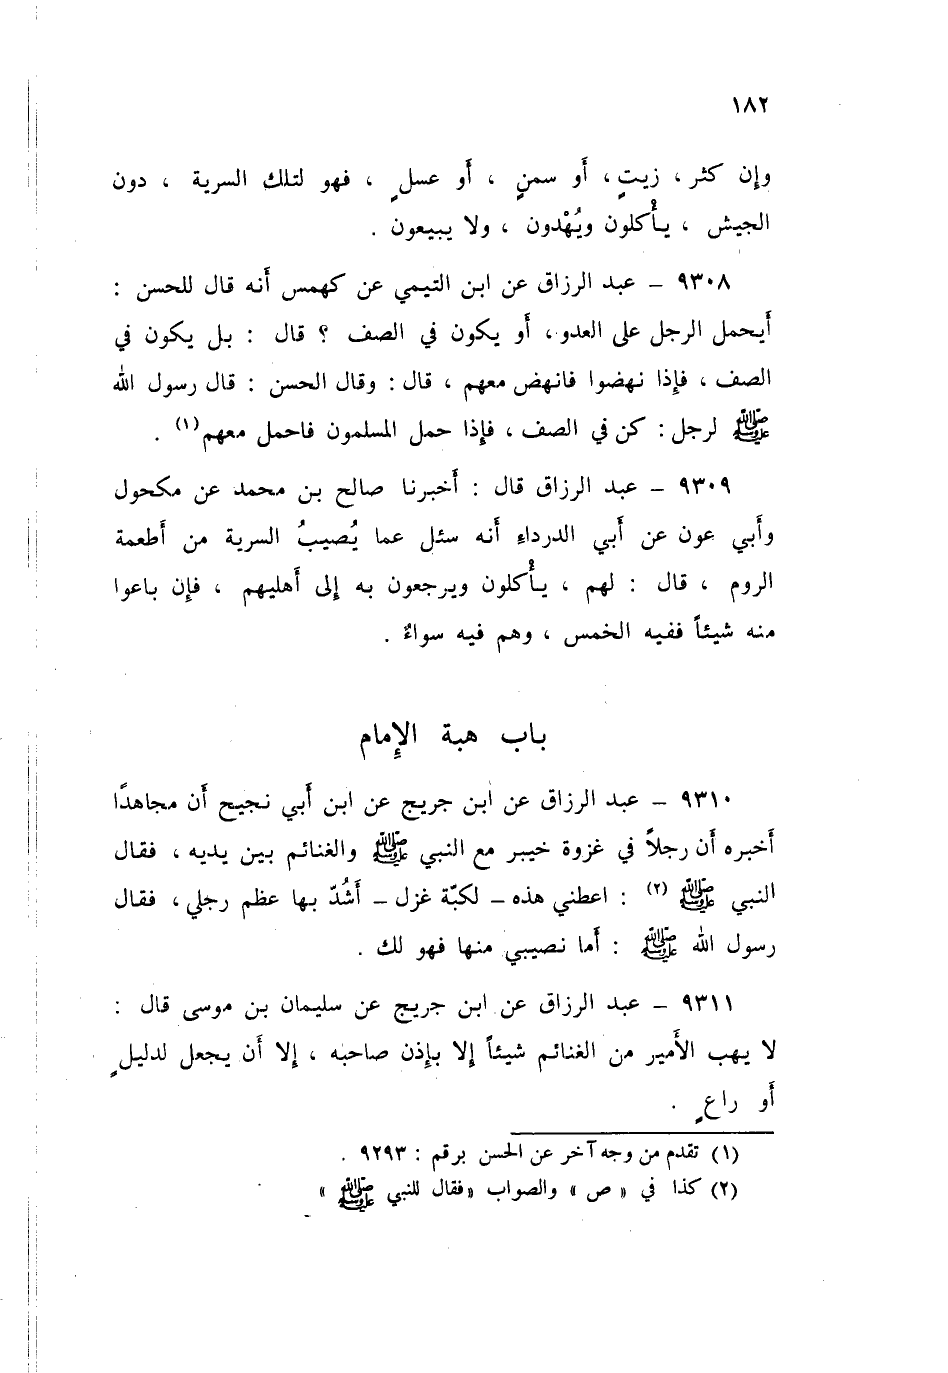 ١٨٢
وإِن كثر ، زيتٍ ، أَو سمنٍ ، أَو عسلٍ ، فهو لتلك السرية ، دون
الجيش ، يأْكلون ويُهْدون ، ولا يبيعون .
٩٣٠٨ – عبد الرزاق عن ابن التيمي عن كهمس أَنه قال للحسن :
أَيحمل الرجل على العدو ، أَو يكون في الصف ؟ قال : بل يكون في
الصف ، فإِذا نهضوا فانهض معهم ، قال : وقال الحسن : قال رسول الله
ﷺ لرجل : كن في الصف ، فإِذا حمل المسلمون فاحمل معهم (١) .
٩٣٠٩ – عبد الرزاق قال : أَخبرنا صالح بن محمد عن مكحول
وأَبي عون عن أَبي الدرداءِ أَنه سئل عما يُصيبُ السرية من أَطعمة
الروم ، قال : لهم ، يأْكلون ويرجعون به إِلى أَهليهم ، فإِن باعوا
منه شيئاً ففيه الخمس ، وهم فيه سواءٌ .
باب هبة الإِمام
٩٣١٠ – عبد الرزاق عن ابن جريج عن ابن أَبي نجيح أَن مجاهدًا
أَخبره أَن رجلاً في غزوة خيبر مع النبي ﷺ والغنائم بين يديه ، فقال
النبي ﷺ (٢) : اعطني هذه – لكبّة غزل – أَشُدّ بها عظم رجلي ، فقال
رسول الله ﷺ : أَما نصيبي منها فهو لك .
٩٣١١ – عبد الرزاق عن ابن جريج عن سليمان بن موسى قال :
لا يهب الأَمير من الغنائم شيئاً إِلا بإِذن صاحبه ، إِلا أَن يجعل لدليلٍ
أَو راعٍ .
(١) تقدم من وجه آخر عن الحسن برقم : ٩٢٩٣ .
(٢) كذا في « ص » والصواب « فقال للنبي ﷺ »